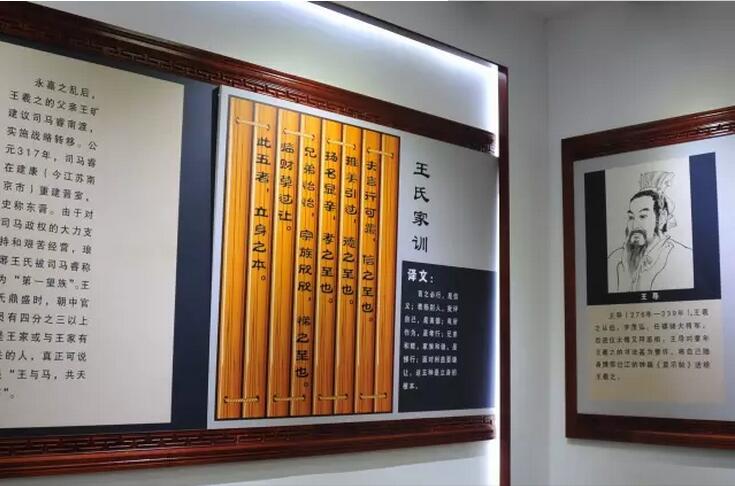 永嘉之乱后，
王羲之的父亲王旷
建议司马睿南渡，
实施战略转移。公
元317年，司马睿
在建康（今江苏南
京市）重建晋室，
史称东晋。由于对
司马政权的大力支
持和艰苦经营，琅
琊王氏被司马睿称
为“第一望族”。王
氏鼎盛时，朝中官
员有四分之三以上
是王家或与王家有
关的人，真正可说
是“王与马，共天
下”。
王氏家训
夫言行可覆，信之至也。
推美引过，德之至也。
扬名显亲，孝之至也。
兄弟怡怡，宗族欣欣，悌之至也。
临财莫过让。
此五者，立身之本。
译文：
言之必行，是信
义；
和睦，家族和谐，是
悌行；面对利益面谦
让。这五种是立身的
根本。
王导
王导（276年—339年），王羲
之从伯，字茂弘，